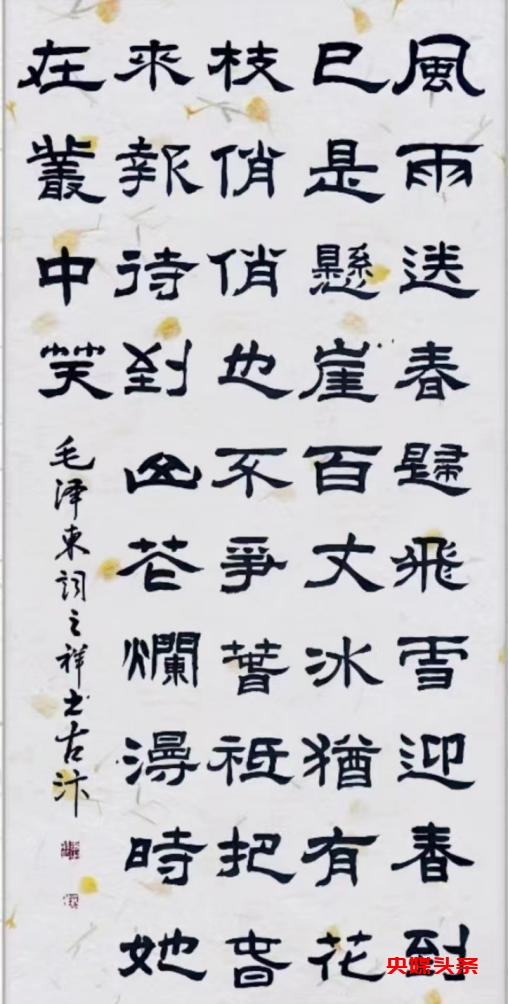 風雨送春歸飛雪迎春到
已是懸崖百丈冰猶有花
枝俏俏也不爭春祗把春
來報待到山花爛漫時她
在叢中笑
毛泽東詞之祥书古汴
央媒头条